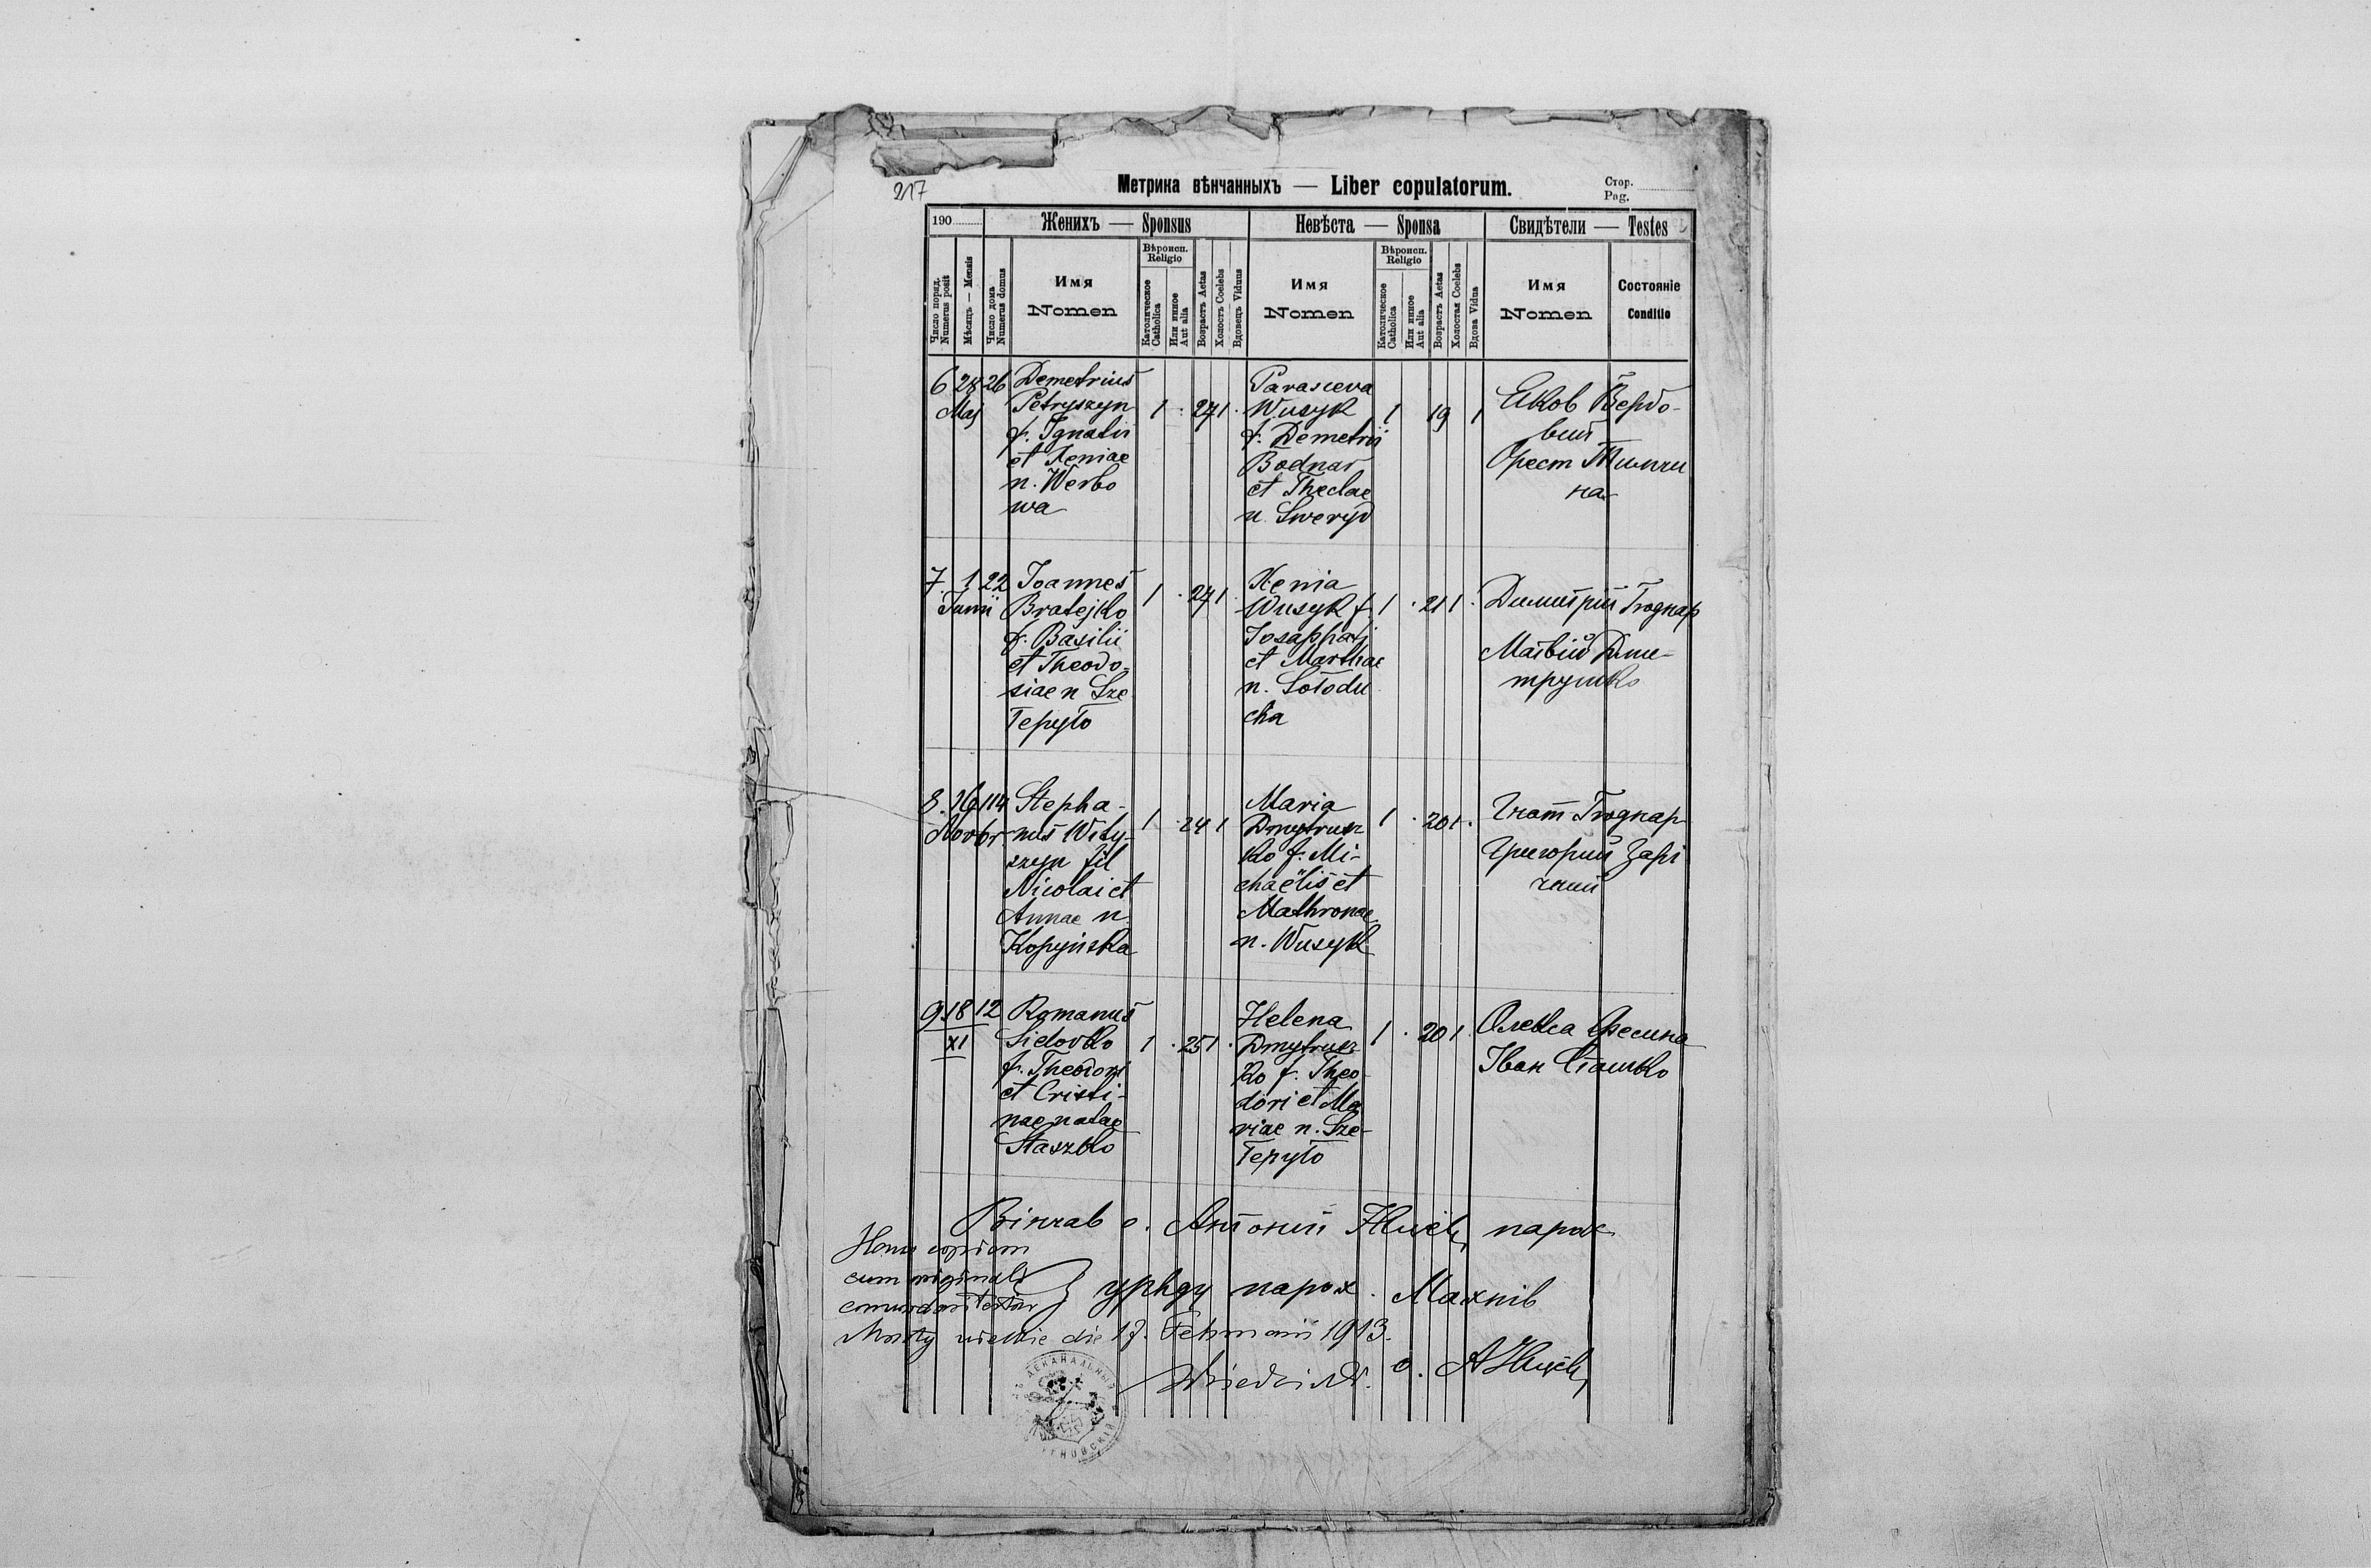 217
Метрика вѣнчанныхъ — Liber copulatorum.
Стор.
Pag.
190
Женихъ — Sponsus
Невѣста — Sponsa
Свидѣтели — Testes
Число поряд.
Numerus posit
Мѣсяцъ — Mensis
Число дома
Numerus domus
Имя
Nomen
Вѣроисп.
Religio
Католическое
Catholica
Или инное
Aut alia
Возрастъ Aetas
Холостъ Coelebs
Вдовецъ Viduus
Имя
Nomen
Вѣроисп.
Religio
Католическое
Catholica
Или инное
Aut alia
Возрастъ Aetas
Холостая Coelebs
Вдова Vidua
Имя
Nomen
Состояніе
Conditio
6 28 26
Maj
Demetrius
Petryszyn
f. Ignatii
et Xeniae
n. Werbo
wa
1 . 27 1 .
Parasceva
Wusyk
f. Demetrii
Bodnar
et Theclae
n. Sweryd
1 19 1
Яков Вербо-
вий
Орест
на
7 1 22
Junii
Joannes
Bratejko
f. Basilii
et Theodo-
siae n Sze
łepyło
1 . 27 1
Xenia
Wusyk f.
Josaphat
et Marthae
n. Sołodu
cha
1 . 21 1 .
Димитрий Боднар
Матвій Дми-
трушко
8. 16 114
Novbr.
Stepha-
nus Wity-
szyn fil
Nicolai et
Annae n.
Kopyńska
1 . 24 1
Maria
Dmytrusz
ko f. Mi-
chaëlis et
Mathronae
n. Wusyk
1 . 20 1 .
Ігнат Боднар
Григорий Зарі
чний
9 18 12
XI
Romanus
Sidorko
f. Theodori
et Cristi-
nae natae
Staszko
1 . 25 1 .
Helena
Dmytrusz
ko f. Theo-
dori et Ma
riae n. Sze-
łepyło
1 . 20 1 .
Олекса Фесина
Іван Сташко
Вінчав о. Антоний парох
Hanc copiam
cum originali
З уряду парох. Махнів
Mosty wielkie die 17. 1913.
о.